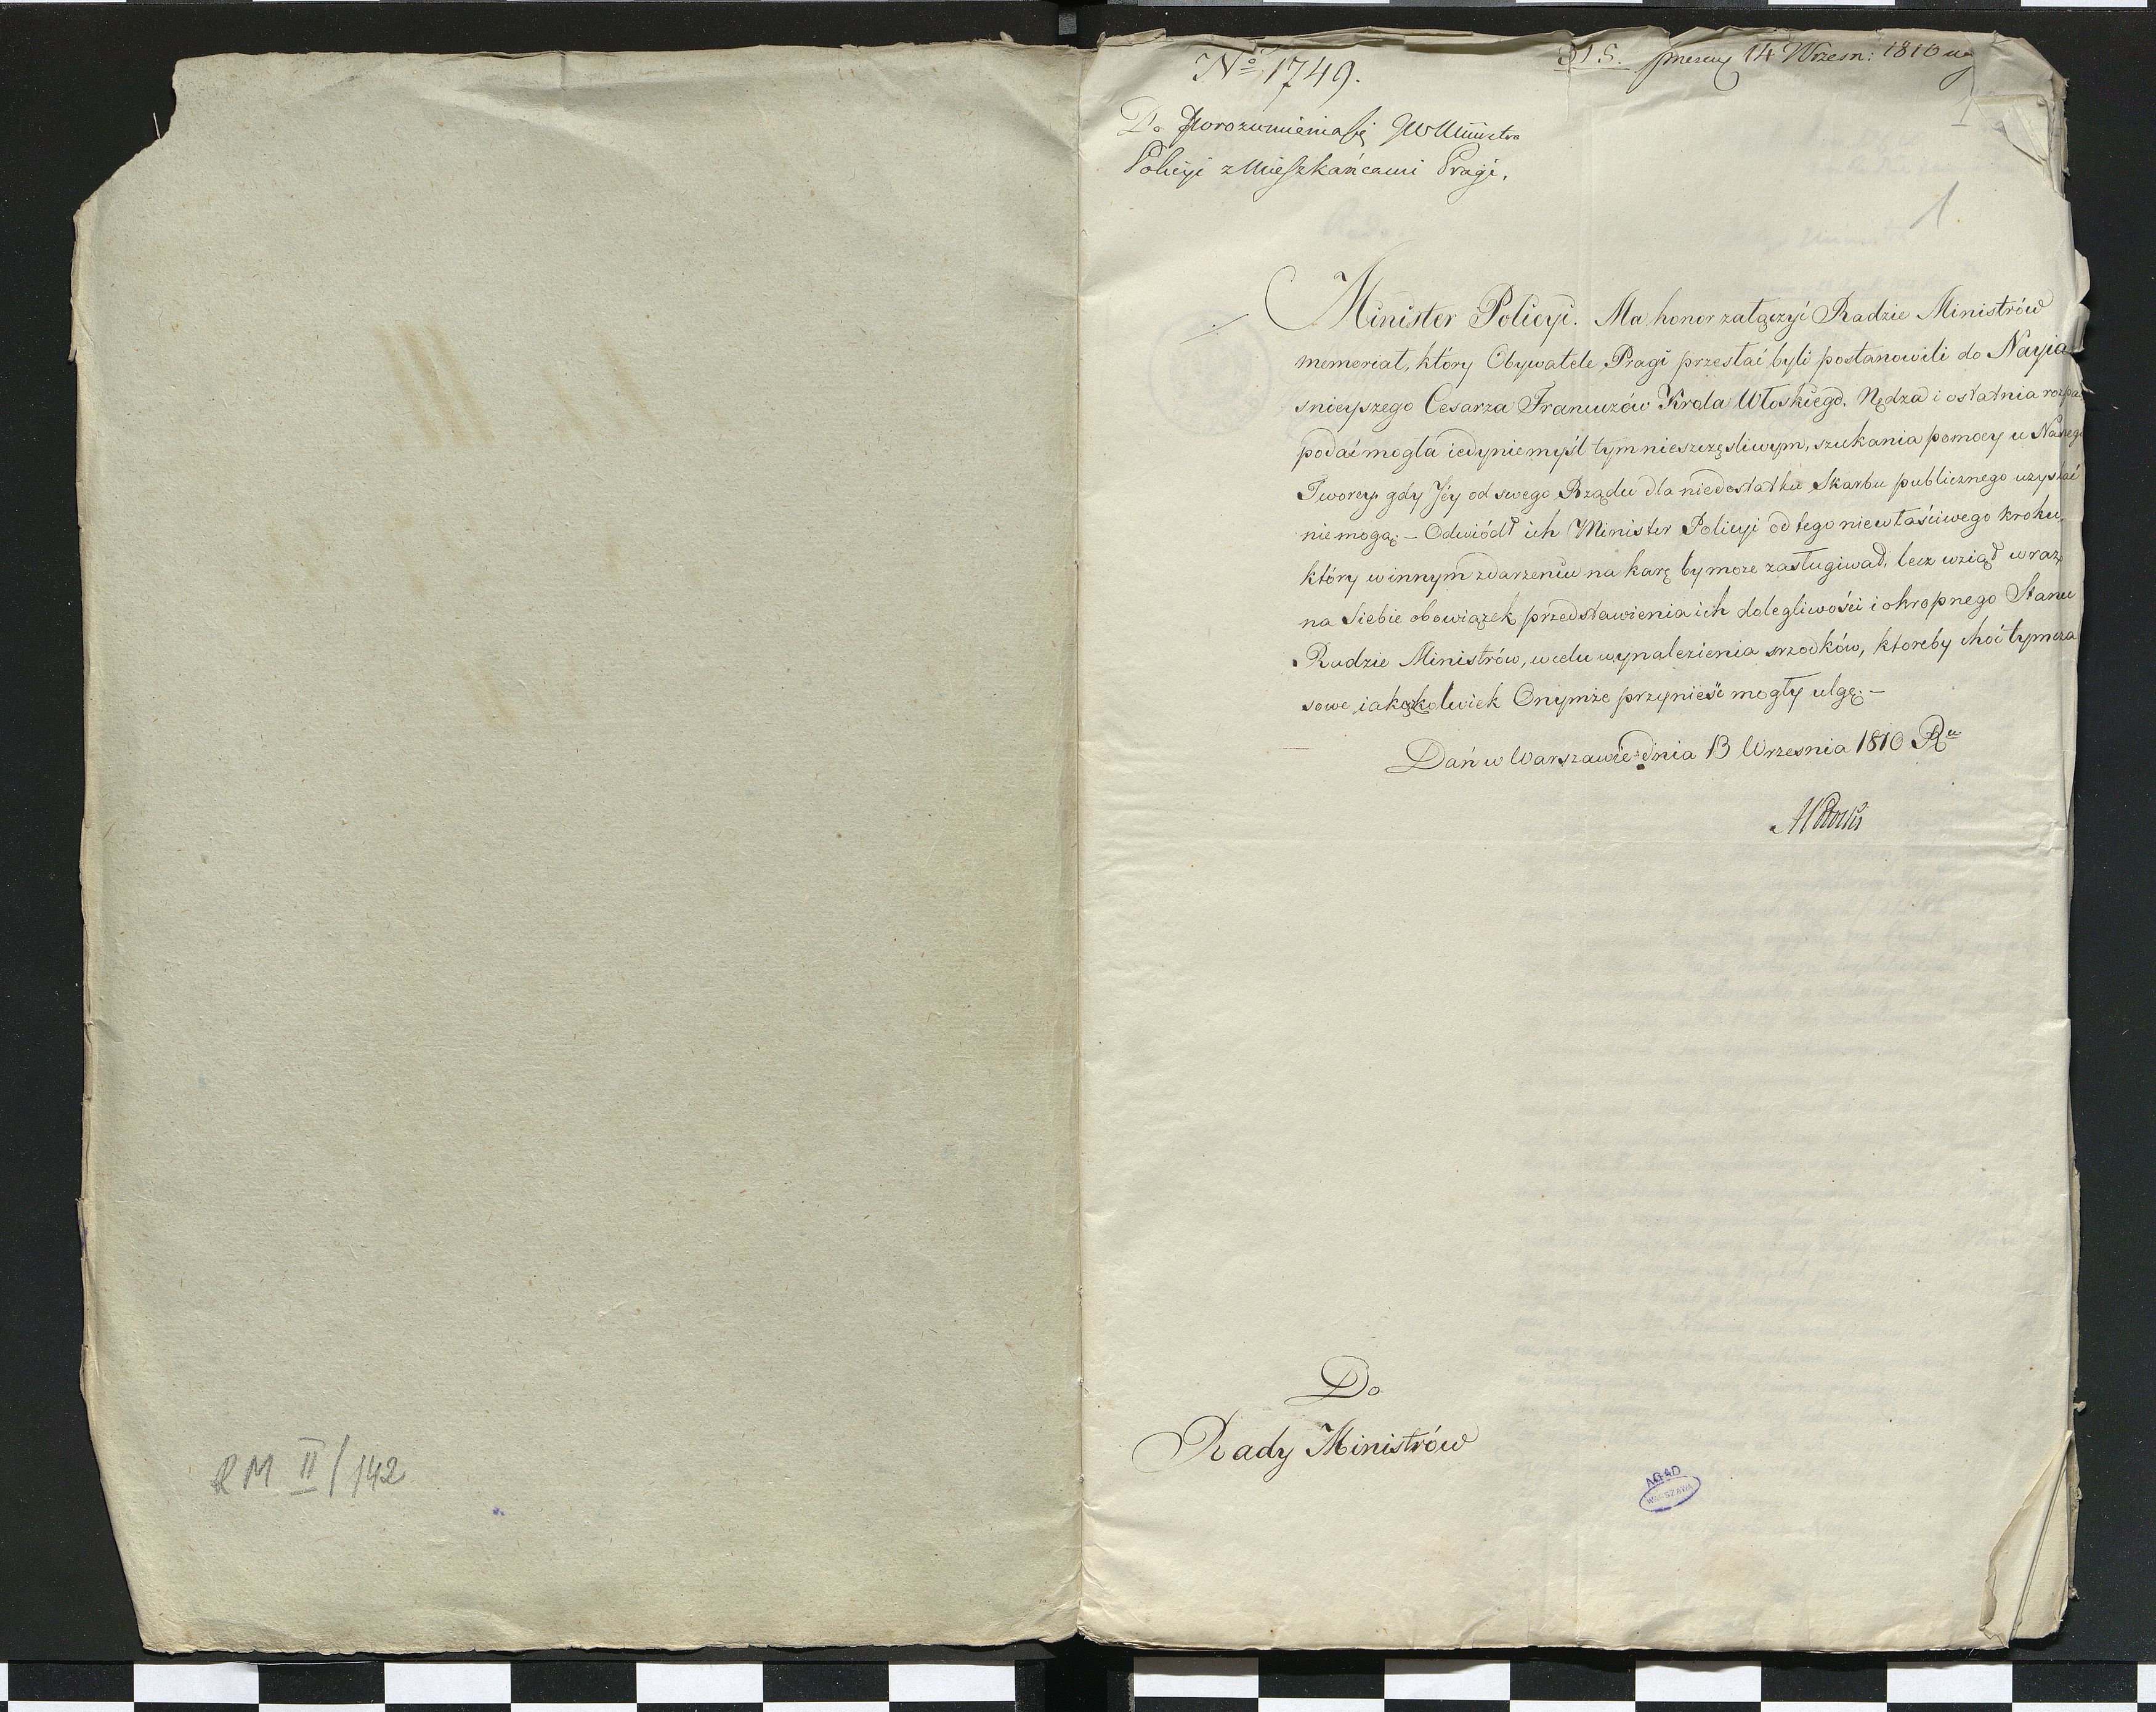 RM II/142
No 1749.
315. 14 Wrzesn: 1810
1
Do porozumienia się JW Ministra
Policyi z Mieszkańcami Pragi.
1
Minister Policyi. Ma honor załączyć Radzie Ministrów
memoriał, który Obywatele Pragi przesłać byli postanowili do Nayia
snieyszego Cesarza Francuzów Króla Włoskiego. Nędza i ostatnia rozpa
podać mogła iedynie myśl tym nieszczęsliwym, szukania pomocy u Naszego
Tworcy, gdy Jéy od swego Rządu dla niedostatku Skarbu publicznego uzyskać
nie mogą. – Odwiódł ich Minister Policyi od tego niewłaściwego kroku,
który w innym zdarzeniu na karę by może zasługiwał, lecz wziął wraz
na Siebie obowiązek przedstawienia ich dolegliwości i okropnego Stanu
Radzie Ministrów, w celu wynalezienia srzodków, ktoreby choć tymcza
sowe iakążkolwiek Onymże przynieść mogły ulgę. –
Dań w Warszawie dnia 13 Wrzesnia 1810 Ru
Do
Rady Ministrów
AGAD
WARSZAWA